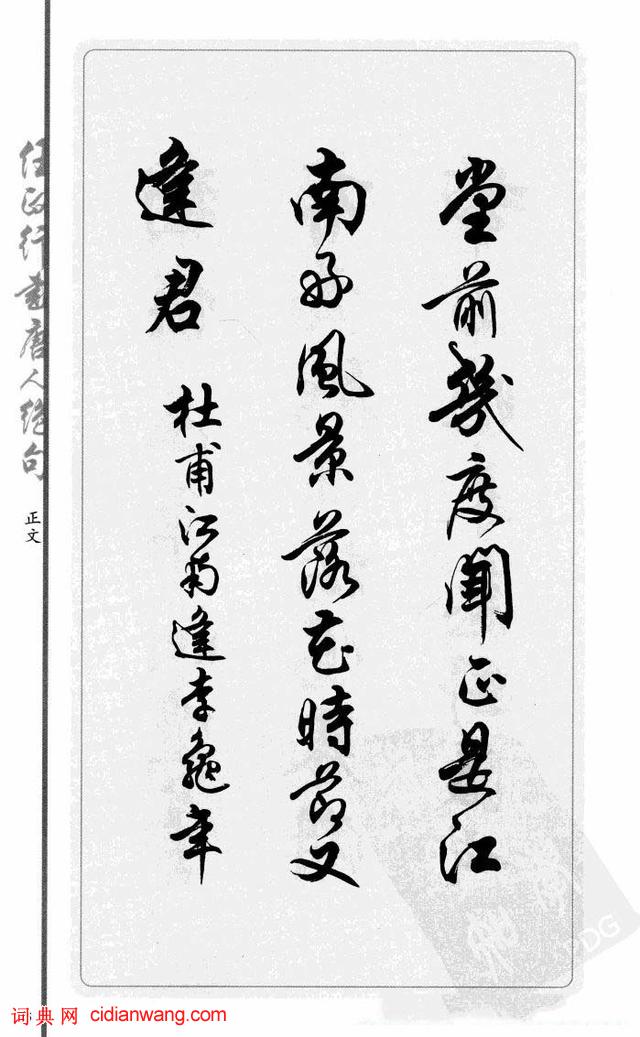 堂前幾度聞正是江
南好風景落花時節又
逢君
杜甫江南逢李龜年
任政行書唐人绝句
正文
词典网 cidianwang.com